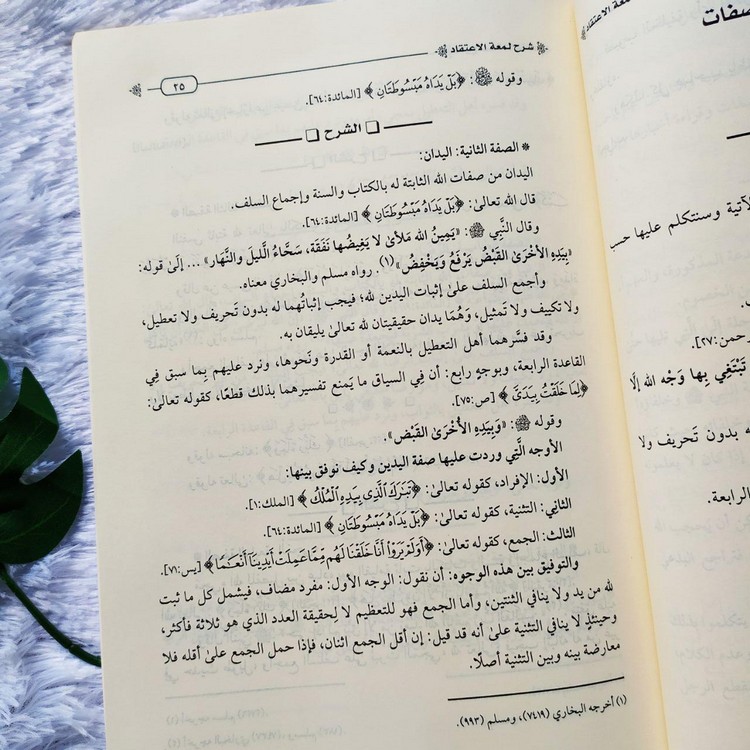 شرح لمعة الاعتقاد
٢٥
وقوله ﷺ: ﴿بَلْ يَدَاهُ مَبْسُوطَتَانِ﴾ [المائدة:٦٤].
الشرح
* الصفة الثانية: اليدان:
اليدان من صفات الله الثابتة له بالكتاب والسنة وإجماع السلف.
قال الله تعالىٰ: ﴿بَلْ يَدَاهُ مَبْسُوطَتَانِ﴾ [المائدة:٦٤].
وقال النَّبِي ﷺ: «يَمِينُ الله مَلأىٰ لا يَغِيضُها نَفَقَة، سَحَّاءُ اللَّيلَ والنَّهَار» ... إلَىٰ قوله:
«بِيَدِهِ الأخْرَىٰ القَبْضُ يَرْفَعُ وَيَخْفِضُ»(١). رواه مسلم والبخاري معناه.
وأجمع السلف علىٰ إثبات اليدين لله؛ فيجب إثباتُهما له بدون تَحريف ولا تعطيل،
ولا تكييف ولا تَمثيل، وَهُمَا يدان حقيقيتان لله تعالىٰ يليقان به.
وقد فسَّرهما أهل التعطيل بالنعمة أو القدرة ونَحوها، ونرد عليهم بِما سبق فِي
القاعدة الرابعة، وبوجهٍ رابع: أن فِي السياق ما يَمنع تفسيرهما بذلك قطعًا، كقوله تعالىٰ:
﴿لِمَا خَلَقْتُ بِيَدَيَّ﴾ [ص:٧٥].
وقوله ﷺ: «وَبِيَدِهِ الأُخْرَىٰ القَبْض».
الأوجه الَّتِي وردت عليها صفة اليدين وكيف نوفق بينها:
الأول: الإفراد، كقوله تعالىٰ: ﴿تَبَٰرَكَ ٱلَّذِى بِيَدِهِ ٱلْمُلْكُ﴾ [الملك:١].
الثانِي: التثنية، كقوله تعالىٰ: ﴿بَلْ يَدَاهُ مَبْسُوطَتَانِ﴾ [المائدة:٦٤].
الثالث: الجمع، كقوله تعالىٰ: ﴿أَوَلَمْ يَرَوْا أَنَّا خَلَقْنَا لَهُم مِّمَّا عَمِلَتْ أَيْدِينَا أَنْعَٰمًا﴾ [يس:٧١].
والتوفيق بين هذه الوجوه: أن نقول: الوجه الأول: مفرد مضاف، فيشمل كل ما ثبت
لله من يد ولا ينافي الثنتين، وأما الجمع فهو للتعظيم لا لِحقيقة العدد الذي هو ثلاثة فأكثر،
وحينئذٍ لا ينافي التثنية علىٰ أنه قد قيل: إن أقل الجمع اثنان، فإذا حمل الجمع علىٰ أقله فلا
معارضة بينه وبين التثنية أصلًا.
(١) أخرجه البخاري (٧٤١٩)، ومسلم (٩٩٣).
لمعة الاعتقاد
صفات
الآتية وسنتكلم عليها حسب
رحمن:٢٧].
تَبْتَغِي بِها وَجْه الله إلَّا
به بدون تَحريف ولا
الرابعة.